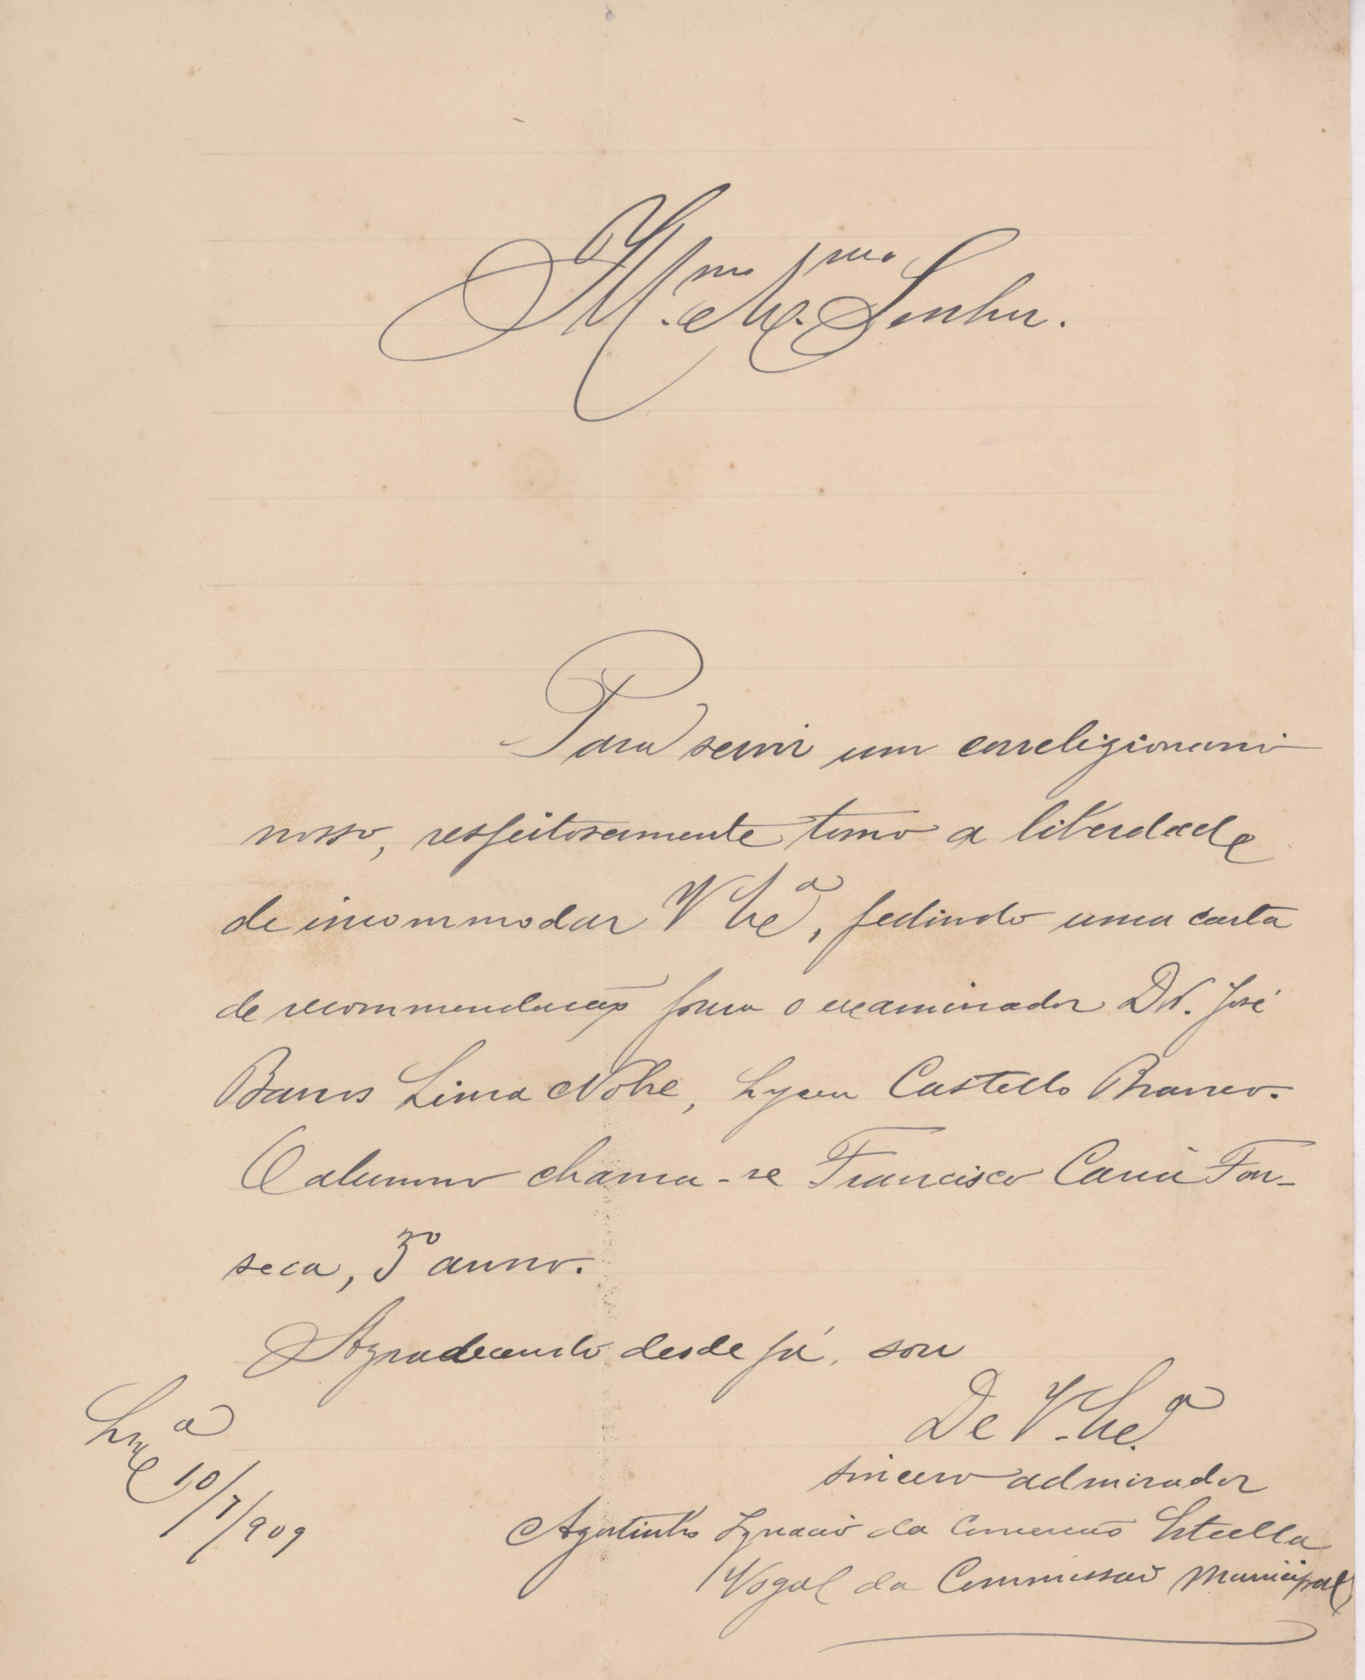 Illmo. e Exmo. Senhor.
Para servir um correligionario
nosso, respeitosamente tomo a liberdade
de incommodar V Exª, pedindo uma carta
de recommendação para o examinador Dr. José
Barros Lima Nobre, Lyceu Castello Branco.
O alumno chama-se Francisco Fon-
seca, 3º anno.
Agradecendo desde já, sou
De V. Exª
sincero admirador
Lxª 10/7/909
Agostinho Ignacio da Conceição Estrella
Vogal da Commissão Municipal